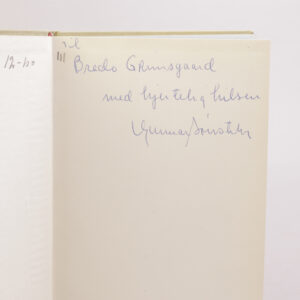 til
12-00
Bredo Grimsgaard
med hjertelig hilsen
Gunnar Sønsteby